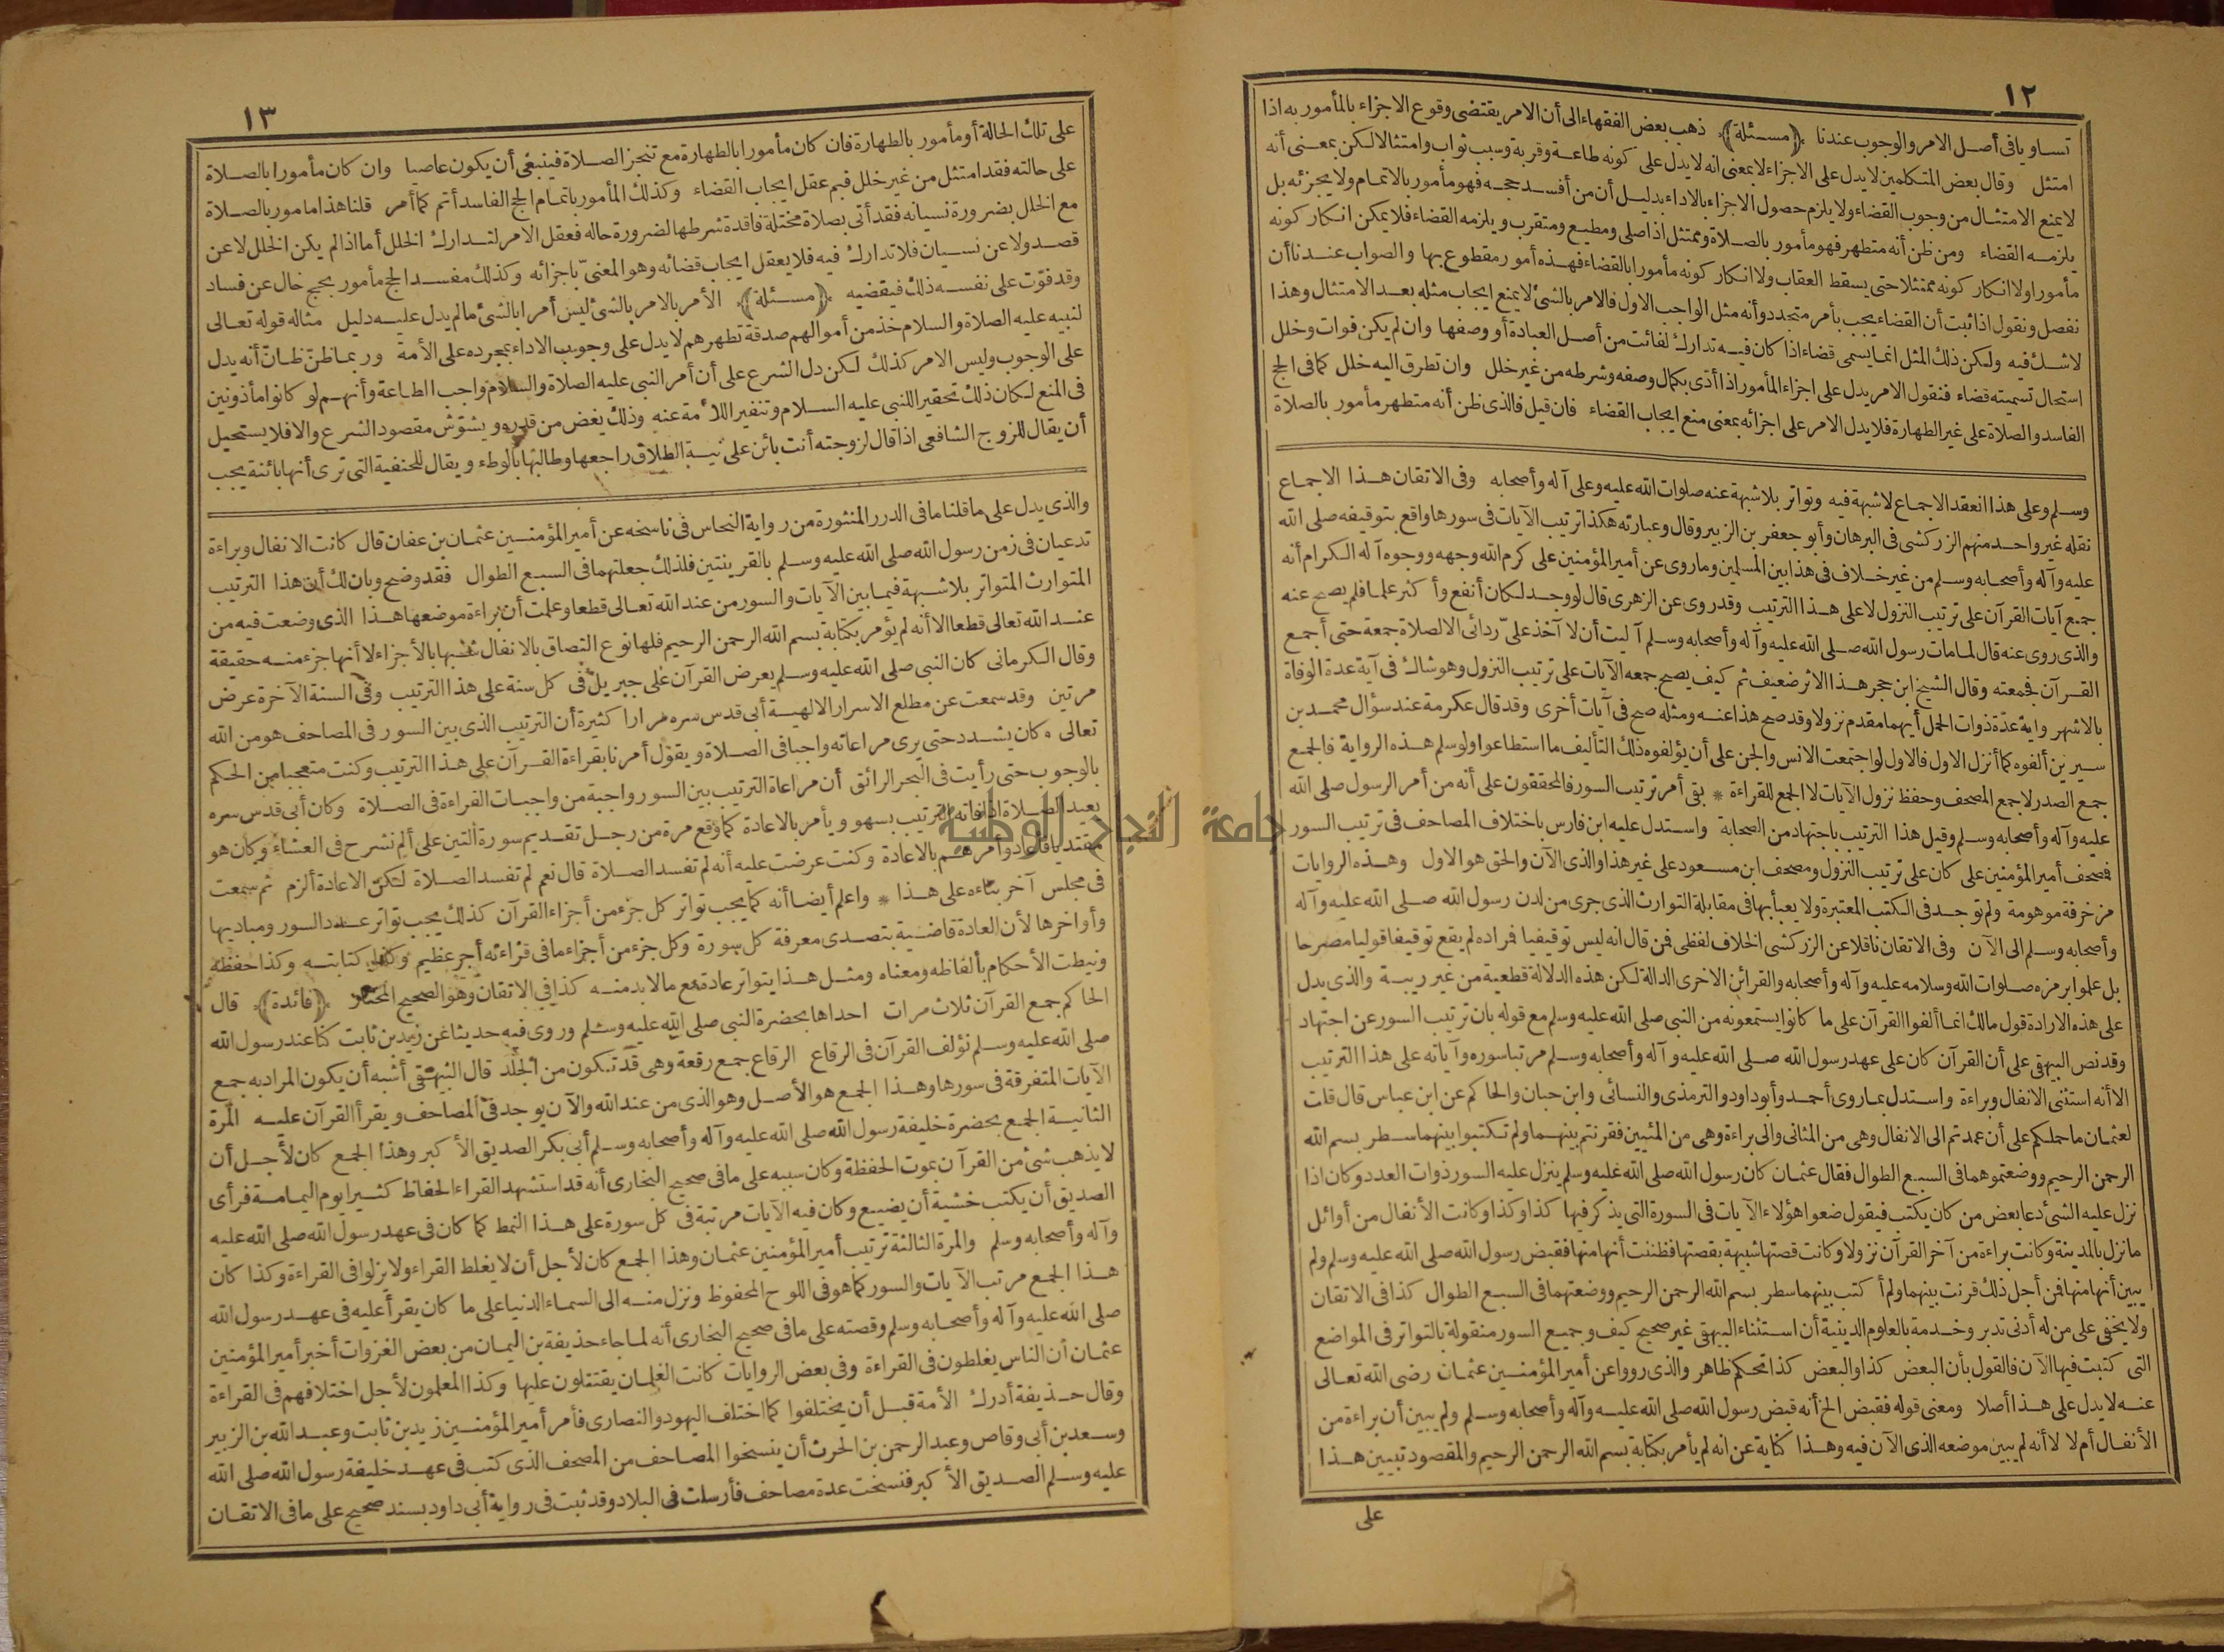 ١٢
تساويا في أصل الامر والوجوب عندنا ﴿مسئلة﴾ ذهب بعض الفقهاء الى أن الامر يقتضى وقوع الاجزاء بالمأمور به اذا
امتثل وقال بعض المتكلمين لا يدل على الاجزاء لا بمعنى انه لا يدل على كونه طاعة وقربة وسبب ثواب وامتثالا لكن بمعنى أنه
لا يمنع الامتثال من وجوب القضاء ولا يلزم حصول الاجزاء بالاداء بدليل أن من أفسد حجه فهو مأمور بالاتمام ولا يجزئه بل
يلزمه القضاء ومن ظن أنه متطهر فهو مأمور بالصلاة وممتثل اذا صلى ومطيع ومتقرب ويلزمه القضاء فلا يمكن انكار كونه
مأمورا ولا انكار كونه ممتثلا حتى يسقط العقاب ولا انكار كونه مأمورا بالقضاء فهذه أمور مقطوع بها والصواب عندنا أن
نفصل ونقول اذا ثبت أن القضاء يجب بأمر متجدد وأنه مثل الواجب الاول فالامر بالشئ لا يمنع ايجاب مثله بعد الامتثال وهذا
لا شك فيه ولكن ذلك المثل انما يسمى قضاء اذا كان فيه تدارك لفائت من أصل العبادة أو وصفها وان لم يكن فوات وخلل
استحال تسميته قضاء فنقول الامر يدل على اجزاء المأمور اذا أدى بكمال وصفه وشرطه من غير خلل وان تطرق اليه خلل كما في الحج
الفاسد والصلاة على غير الطهارة فلا يدل الامر على اجزائه بمعنى منع ايجاب القضاء فان قيل فالذى ظن أنه متطهر مأمور بالصلاة
وسلم وعلى هذا انعقد الاجماع لا شبهة فيه وتواتر بلا شبهة عنه صلوات الله عليه وعلى آله وأصحابه وفى الاتقان هذا الاجماع
نقله غير واحد منهم الزركشى فى البرهان وأبو جعفر بن الزبير وقال وعبارته هكذا ترتيب الآيات فى سورها واقع بتوقيفه صلى الله
عليه وآله وأصحابه وسلم من غير خلاف فى هذا بين المسلمين وما روى عن أمير المؤمنين على كرم الله وجهه ووجوه آله الكرام أنه
جمع آيات القرآن على ترتيب النزول لا على هذا الترتيب وقد روى عن الزهرى قال لو وجد لكان أنفع وأكثر علما فلم يصح عنه
والذى روى عنه قال لما مات رسول الله صلى الله عليه وآله وأصحابه وسلم آليت أن لا آخذ علىّ ردائى الا لصلاة جمعة حتى أجمع
القرآن فجمعته وقال الشيخ ابن حجر هذا الاثر ضعيف ثم كيف يصح جمعه الآيات على ترتيب النزول وهو شاك فى آية عدة الوفاة
بالاشهر وآية عدّة ذوات الحمل أيهما مقدم نزولا وقد صح هذا عنه ومثله صح فى آيات أخرى وقد قال عكرمة عند سؤال محمد بن
سيرين ألفوه كما أنزل الاول فالاول لو اجتمعت الانس والجن على أن يؤلفوه ذلك التأليف ما استطاعوا ولو سلم هذه الرواية فالجمع
جمع الصدر لا جمع المصحف وحفظ نزول الآيات لا الجمع للقراءة * بقى أمر ترتيب السور فالمحققون على أنه من أمر الرسول صلى الله
عليه وآله وأصحابه وسلم وقيل هذا الترتيب باجتهاد من الصحابة واستدل عليه ابن فارس باختلاف المصاحف فى ترتيب السور
فمصحف أمير المؤمنين على كان على ترتيب النزول ومصحف ابن مسعود على غير هذا والذى الآن والحق هو الاول وهذه الروايات
مزخرفة موهومة ولم توجد فى الكتب المعتبرة ولا يعبأ بها فى مقابلة التوارث الذى جرى من لدن رسول الله صلى الله عليه وآله
وأصحابه وسلم الى الآن وفى الاتقان ناقلا عن الزركشى الخلاف لفظى فمن قال انه ليس توقيفيا فراده لم يقع توقيفا قوليا مصرحا
بل علموا برمزه صلوات الله وسلامه عليه وآله وأصحابه والقرائن الاخرى الدالة لكن هذه الدلالة قطعية من غير ريبة والذى يدل
على هذه الارادة قول مالك انما ألفوا القرآن على ما كانوا يستمعونه من النبى صلى الله عليه وسلم مع قوله بان ترتيب السور عن اجتهاد
وقد نص البيهقى على أن القرآن كان على عهد رسول الله صلى الله عليه وآله وأصحابه وسلم مرتبا سوره وآياته على هذا الترتيب
الا أنه استثنى الانفال وبراءة واستدل بما روى أحمد وأبو داود والترمذى والنسائى وابن حبان والحاكم عن ابن عباس قال قلت
لعثمان ما حملكم على أن عمدتم الى الانفال وهى من المثانى والى براءة وهى من المئيين فقرنتم بينهما ولم تكتبوا بينهما سطر بسم الله
الرحمن الرحيم ووضعتموهما فى السبع الطوال فقال عثمان كان رسول الله صلى الله عليه وسلم ينزل عليه السور ذوات العدد وكان اذا
نزل عليه الشئ دعا بعض من كان يكتب فيقول ضعوا هؤلاء الآيات فى السورة التى يذكر فيها كذا وكذا وكانت الأنفال من أوائل
ما نزل بالمدينة وكانت براءة من آخر القرآن نزولا وكانت قصتها شبيهة بقصتها فظننت أنها منها فقبض رسول الله صلى الله عليه وسلم ولم
يبين أنها منها فمن أجل ذلك قرنت بينهما ولم أكتب بينهما سطر بسم الله الرحمن الرحيم ووضعتهما فى السبع الطوال كذا فى الاتقان
ولا يخفى على من له أدنى تدبر وخدمة بالعلوم الدينية أن استثناء البيهقى غير صحيح كيف وجميع السور منقولة بالتواتر فى المواضع
التى كتبت فيها الآن فالقول بأن البعض كذا والبعض كذا تحكم ظاهر والذى رووا عن أمير المؤمنين عثمان رضى الله تعالى
عنه لا يدل على هذا أصلا ومعنى قوله فقبض الخ أنه قبض رسول الله صلى الله عليه وآله وأصحابه وسلم ولم يبين أن براءة من
الأنفال أم لا لا لأنه لم يبين موضعه الذى الآن فيه وهذا كناية عن انه لم يأمر بكتابة بسم الله الرحمن الرحيم والمقصود تبيين هذا
على
١٣
على تلك الحالة أو مأمور بالطهارة فان كان مأمورا بالطهارة مع تنجز الصلاة فينبغى أن يكون عاصيا وان كان مأمورا بالصلاة
على حالته فقد امتثل من غير خلل فبم عقل ايجاب القضاء وكذلك المأمور باتمام الحج الفاسد أتم كما أمر قلنا هذا مأمور بالصلاة
مع الخلل بضرورة نسيانه فقد أتى بصلاة مختلة فاقدة شرطها لضرورة حاله فعقل الامر لتدارك الخلل أما اذا لم يكن الخلل لا عن
قصد ولا عن نسيان فلا تدارك فيه فلا يعقل ايجاب قضائه وهو المعنىّ باجزائه وكذلك مفسد الحج مأمور بحج خال عن فساد
وقد فوّت على نفسه ذلك فيقضيه ﴿مسئلة﴾ الأمر بالامر بالشئ ليس أمرا بالشئ ما لم يدل عليه دليل مثاله قوله تعالى
لنبيه عليه الصلاة والسلام خذ من أموالهم صدقة تطهرهم لا يدل على وجوب الاداء بمجرده على الأمة وربما ظنّ ظانّ أنه يدل
على الوجوب وليس الامر كذلك لكن دل الشرع على أن أمر النبى عليه الصلاة والسلام واجب الطاعة وأنهم لو كانوا مأذونين
فى المنع لكان ذلك تحقيرا للنبى عليه السلام وتنفيرا للأمة عنه وذلك يغض من قدره ويشوّش مقصود الشرع والا فلا يستحيل
أن يقال للزوج الشافعى اذا قال لزوجته أنت بائن على نية الطلاق راجعها وطالبها بالوطء ويقال للحنفية التى ترى أنها بائنة يجب
والذى يدل على ما قلنا ما فى الدرر المنثورة من رواية النحاس فى ناسخه عن أمير المؤمنين عثمان بن عفان قال كانت الانفال وبراءة
تدعيان فى زمن رسول الله صلى الله عليه وسلم بالقرينتين فلذلك جعلتهما فى السبع الطوال فقد وضح وبان لك أن هذا الترتيب
المتوارث المتواتر بلا شبهة فيما بين الآيات والسور من عند الله تعالى قطعا وعلمت أن براءة موضعها هذا الذى وضعت فيه من
عند الله تعالى قطعا الا أنه لم يؤمر بكتابة بسم الله الرحمن الرحيم فلها نوع التصاق بالانفال تشبها بالأجزاء لا أنها جزء منه حقيقة
وقال الكرمانى كان النبى صلى الله عليه وسلم يعرض القرآن على جبريل فى كل سنة على هذا الترتيب وفى السنة الآخرة عرض
مرتين وقد سمعت عن مطلع الاسرار الالهية أبى قدس سره مرارا كثيرة أن الترتيب الذى بين السور فى المصاحف هو من الله
تعالى وكان يشدد حتى يرى مراعاته واجبا فى الصلاة ويقول أمرنا بقراءة القرآن على هذا الترتيب وكنت متعجبا من الحكم
بالوجوب حتى رأيت فى البحر الرائق أن مراعاة الترتيب بين السور واجبة من واجبات القراءة فى الصلاة وكان أبى قدس سره
يعيد الصلاة اذا فاته الترتيب بسهو ويأمر بالاعادة كما وقع مرة من رجل تقديم سورة التين على ألم نشرح فى العشاء وكان هو
مقتديا فأعاد وأمرهم بالاعادة وكنت عرضت عليه أنه لم تفسد الصلاة قال نعم لم تفسد الصلاة لكن الاعادة ألزم ثم سمعت
فى مجلس آخر بناءه على هذا * واعلم أيضا أنه كما يجب تواتر كل جزء من أجزاء القرآن كذلك يجب تواتر عدد السور ومباديها
وأواخرها لأن العادة قاضية بتصدى معرفة كل سورة وكل جزء من أجزاء ما فى قراءته أجر عظيم وكذا كتابته وكذا حفظه
ونيطت الأحكام بألفاظه ومعناه ومثل هذا يتواتر عادة مع ما لا بد منه كذا فى الاتقان وهو الصحيح المختار ﴿فائدة﴾ قال
الحاكم جمع القرآن ثلاث مرات احداها بحضرة النبى صلى الله عليه وسلم وروى فيه حديثا عن زيد بن ثابت كنا عند رسول الله
صلى الله عليه وسلم نؤلف القرآن فى الرقاع الرقاع جمع رقعة وهى قد تكون من الجلد قال البيهقى أشبه أن يكون المراد به جمع
الآيات المتفرقة فى سورها وهذا الجمع هو الأصل وهو الذى من عند الله والآن يوجد فى المصاحف ويقرأ القرآن عليه المرة
الثانية الجمع بحضرة خليفة رسول الله صلى الله عليه وآله وأصحابه وسلم أبى بكر الصديق الأكبر وهذا الجمع كان لأجل أن
لا يذهب شئ من القرآن بموت الحفظة وكان سببه على ما فى صحيح البخارى أنه قد استشهد القراء الحفاظ كثيرا يوم اليمامة فرأى
الصديق أن يكتب خشية أن يضيع وكان فيه الآيات مرتبة فى كل سورة على هذا النمط كما كان فى عهد رسول الله صلى الله عليه
وآله وأصحابه وسلم والمرة الثالثة ترتيب أمير المؤمنين عثمان وهذا الجمع كان لأجل أن لا يغلط القراء ولا يزلوا فى القراءة وكذا كان
هذا الجمع مرتب الآيات والسور كما هو فى اللوح المحفوظ ونزل منه الى السماء الدنيا على ما كان يقرأ عليه فى عهد رسول الله
صلى الله عليه وآله وأصحابه وسلم وقصته على ما فى صحيح البخارى أنه لما جاء حذيفة بن اليمان من بعض الغزوات أخبر أمير المؤمنين
عثمان أن الناس يغلطون فى القراءة وفى بعض الروايات كانت الغلمان يقتتلون عليها وكذا المعلمون لأجل اختلافهم فى القراءة
وقال حذيفة أدرك الأمة قبل أن يختلفوا كما اختلف اليهود والنصارى فأمر أمير المؤمنين زيد بن ثابت وعبد الله بن الزبير
وسعد بن أبى وقاص وعبد الرحمن بن الحرث أن ينسخوا المصاحف من المصحف الذى كتب فى عهد خليفة رسول الله صلى الله
عليه وسلم الصديق الأكبر فنسخت عدة مصاحف فأرسلت فى البلاد وقد ثبت فى رواية أبى داود بسند صحيح على ما فى الاتقان
جامعة النجاح الوطنية